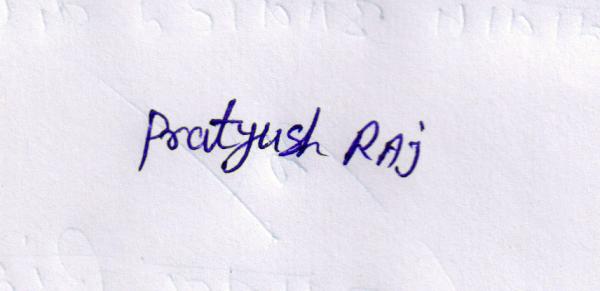 Pratyush RAj